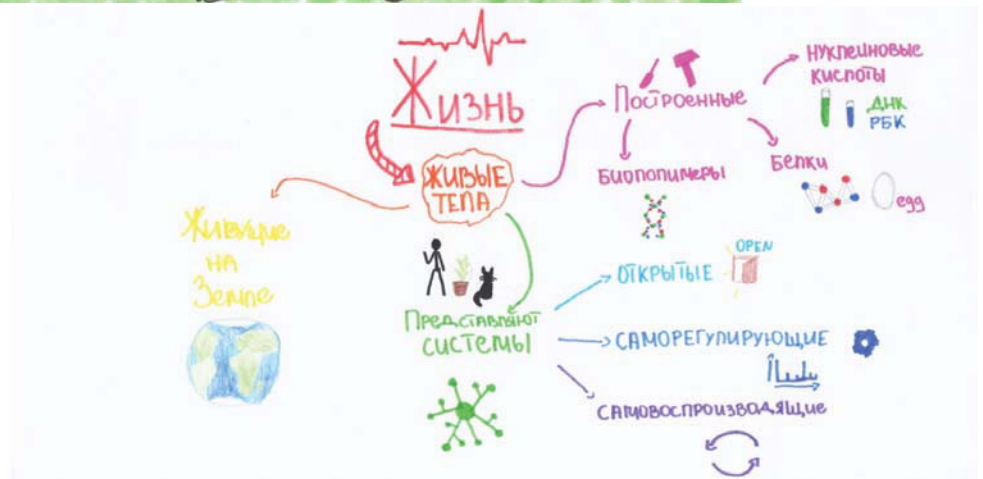 Жизнь
ЖИВЫЕ
ТЕЛА
Живущие
НА
Земле
Построенные
НУКЛЕИНОВЫЕ
КИСЛОТЫ
ДНК
РБК
БИОПОЛИМЕРЫ
БЕЛКИ
egg
ПРЕДСТАВЛЯЮТ
СИСТЕМЫ
ОТКРЫТЫЕ
OPEN
САМОРЕГУЛИРУЮЩИЕ
САМОВОСПРОИЗВОДЯЩИЕ